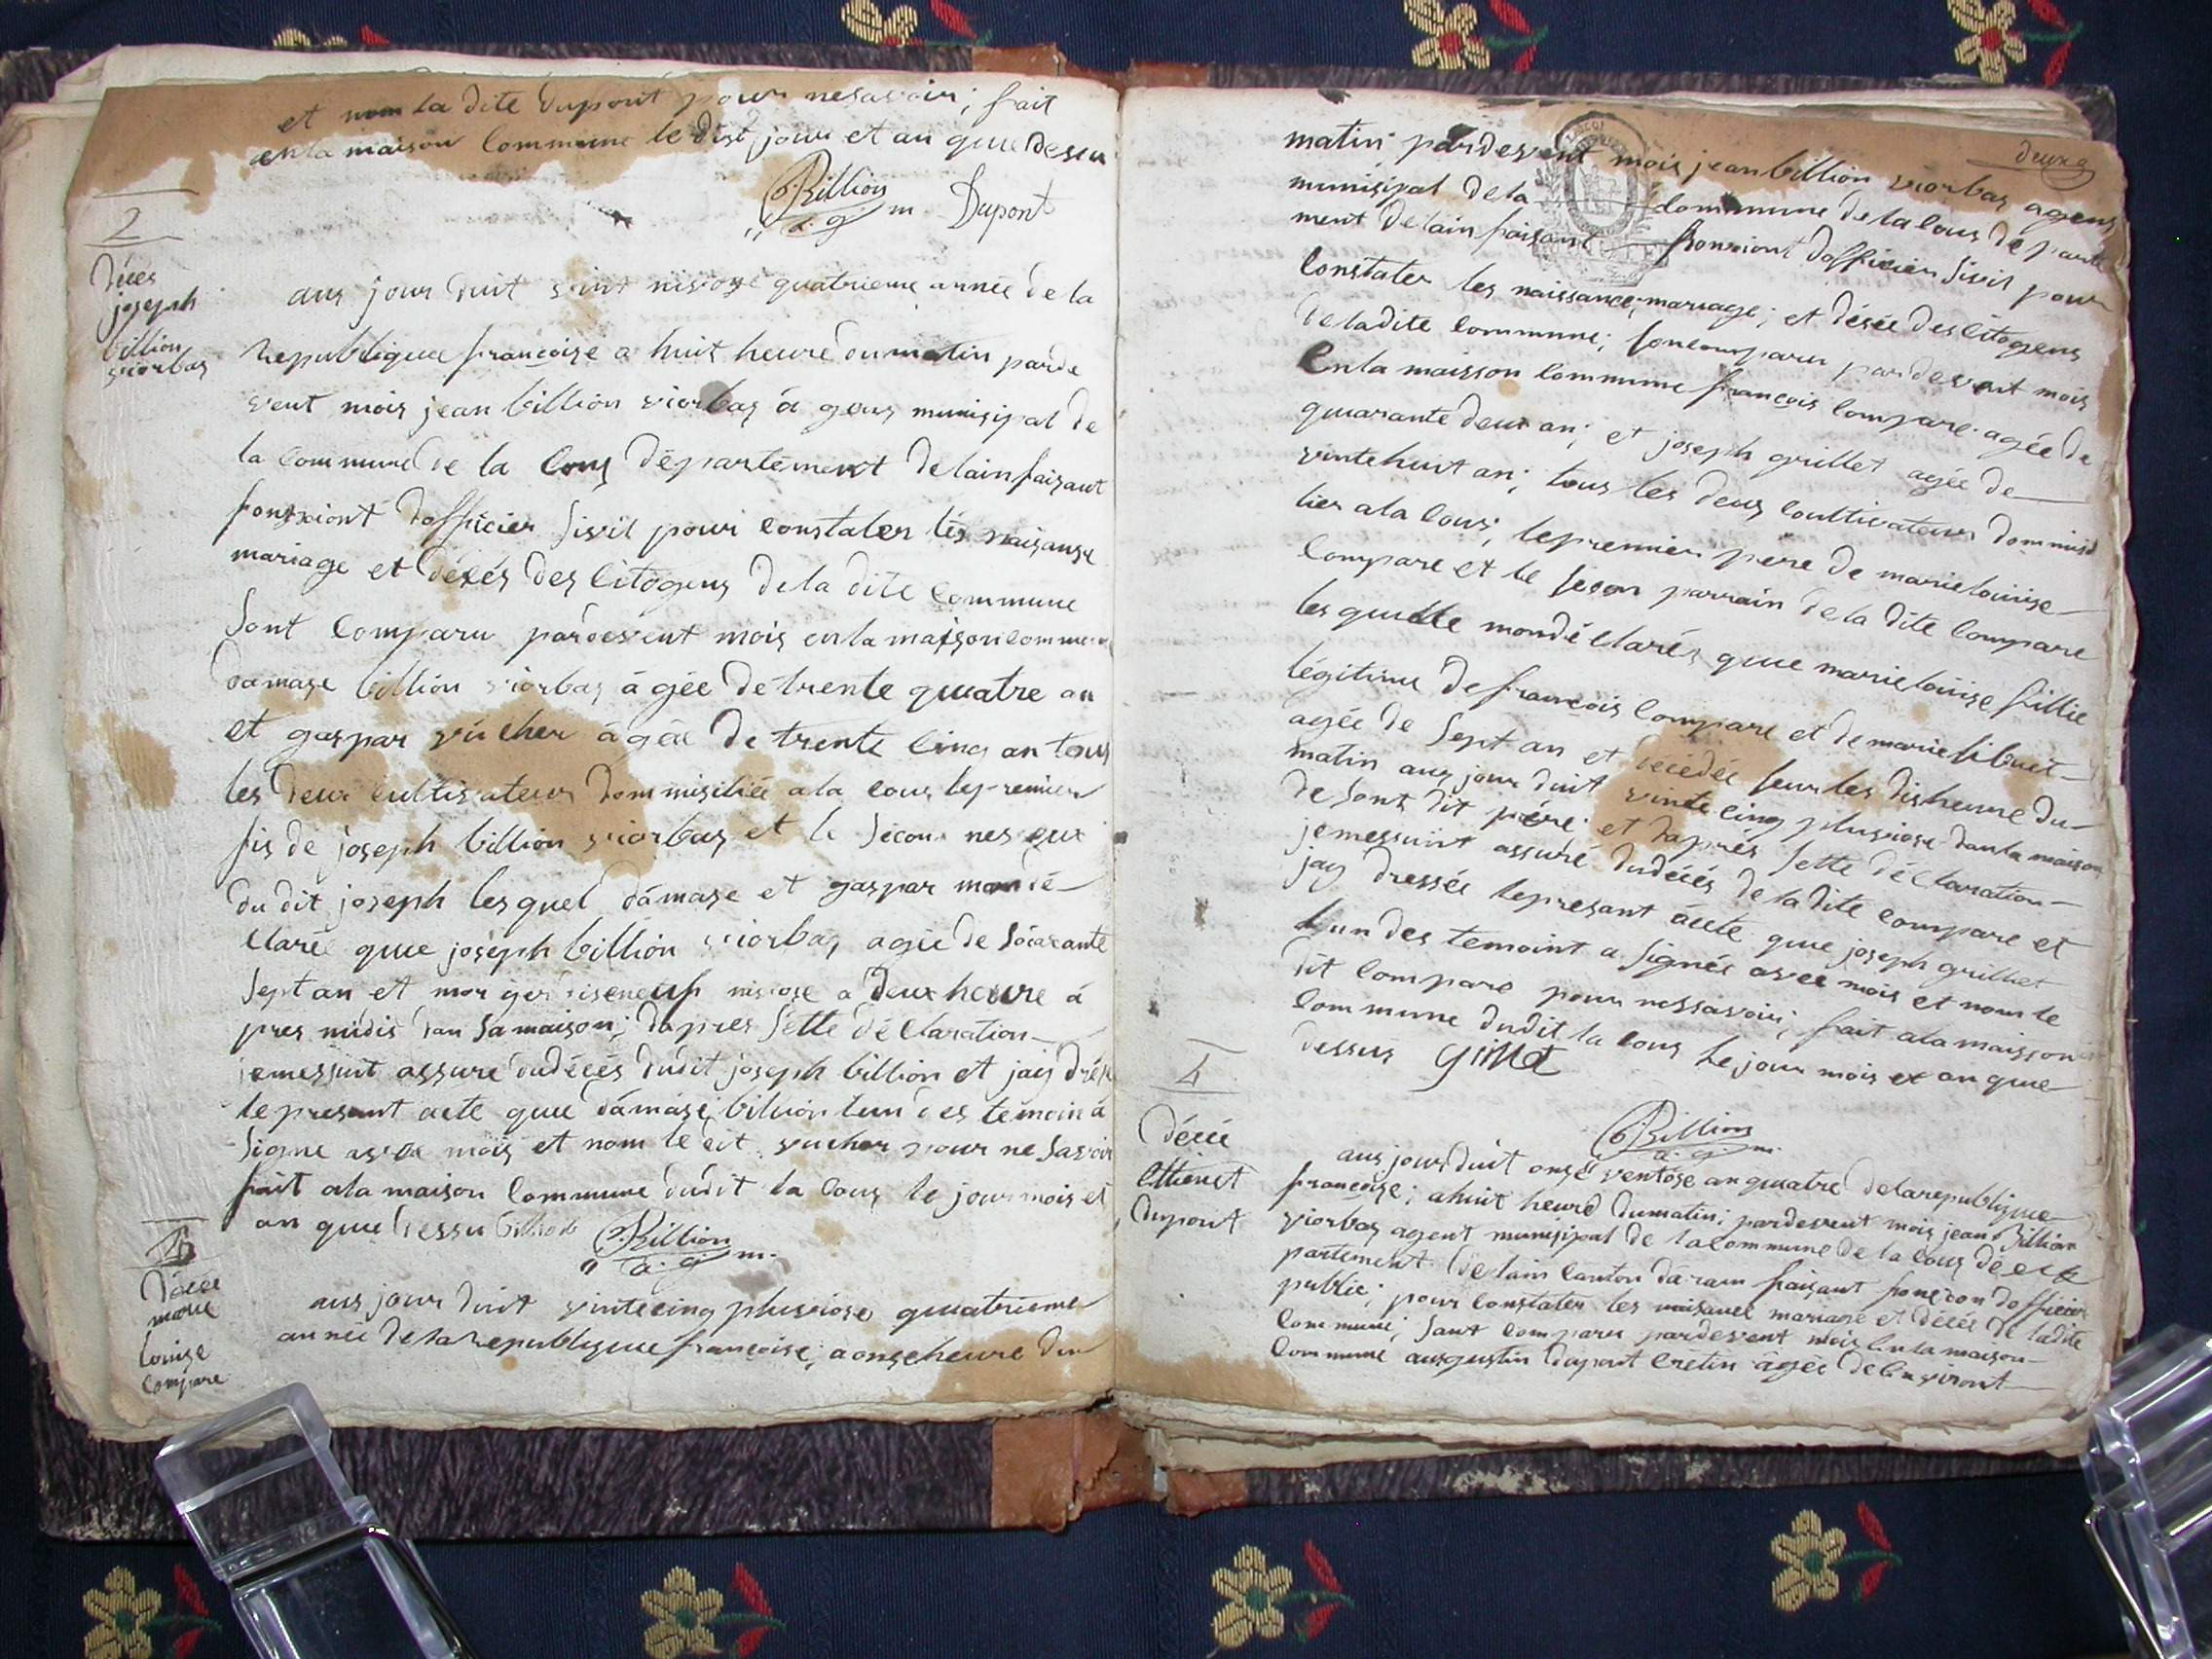 et nom la dite dupont pour nesavoir; fait
en la maison Commune le dist jour et an que desu
Billion
a. g. m. Dupont
2
déces
joseph
billion
viorbas
aus jour duit vint nivose quatrieme année de la
republique francoise a huit heure du matin parde
vent mois jean billion viorbas á gens munisipal de
la Commune de la Cous département de lain faisant
fonxiont dofficier sivil pour constater les naisanse
mariage et décés des citogens de la dite Commune
sont Comparu pardevent mois enla maison commune
damase billion viorbas ágée de trente quatre an
et gaspar vûcher ágée de trente cinq an tous
les deux cultivateur dommisiliée ala cous le premier
fis de joseph billion viorbas et le second neveux
du dit joseph les quel dámase et gaspar mondé
claré que joséph billion viorbas agée de soisante
sept an et mor yer diseneuf nivose a deux heure á
pres midis dan sa maison; dapres sette déclaration
jemessuit assuré dudécés dudit joseph billion et jaij drés
le present acte que dámase billion lun des témoin á
signe avec mois et nom le dit vucher pour ne savoir
fait ala maison Commune dudit la Cous le jour mois et
an que dessu billion
Billion
a. g. m.
décée
marie
louise
compare
aus jour duit vintecinq pluviose quatrieme
année de la republique francoise; a onse heure du
deux
matin pardevent mois jean billion viorbas agens
munisipal de la Commune de la cous departe
ment de lain faisant fonxiont dofficier sivil pour
Constater les naissance, mariage; et décée des citogens
de la dite Commune; son comparu pardevent mois
Enla maisson Commune françois Compare agée de
quarante deux an; et joseph grillet agée de
vintehuit an; tous les deux coultivateur dommisi
lier ala cous; le premier pere de marie louise
Compare et le segon parrain de la dite Compare
les quelle mondéclarés que marie louise fillie
légitime de francois Compare et de marie
agée de sept an et décedée seur les dis heure du
matin aus jour duit vinte cinq pluviose dan la maison
de sont dit pére et dáprés sette déclaration
jemessuit assuré dudécés de la dite Compare et
jaij dressée le presant acte que joseph grillet
lun des temoint a signée avec mois et nom le
dit Compare pour nessavoir, fait ala maisson
Commune dudit la Cous le jour mois et an que
dessus grillet
Billion
a. g. m.
4
décée
ettienet
dupont
aus jour duit onse ventose an quatre de la republique
françoise; a huit heure du matin; pardevent mois jean Billion
viorbas agent munisipal de la Commune de la Cous dé
partement de lain Canton dáram faisant fonction dofficier
public; pour Constater les naisance mariage et décés de la dite
Commune; sant comparu pardevent mois Enla maison
Commune ausgustin dupont Cretin ágée de lenviront